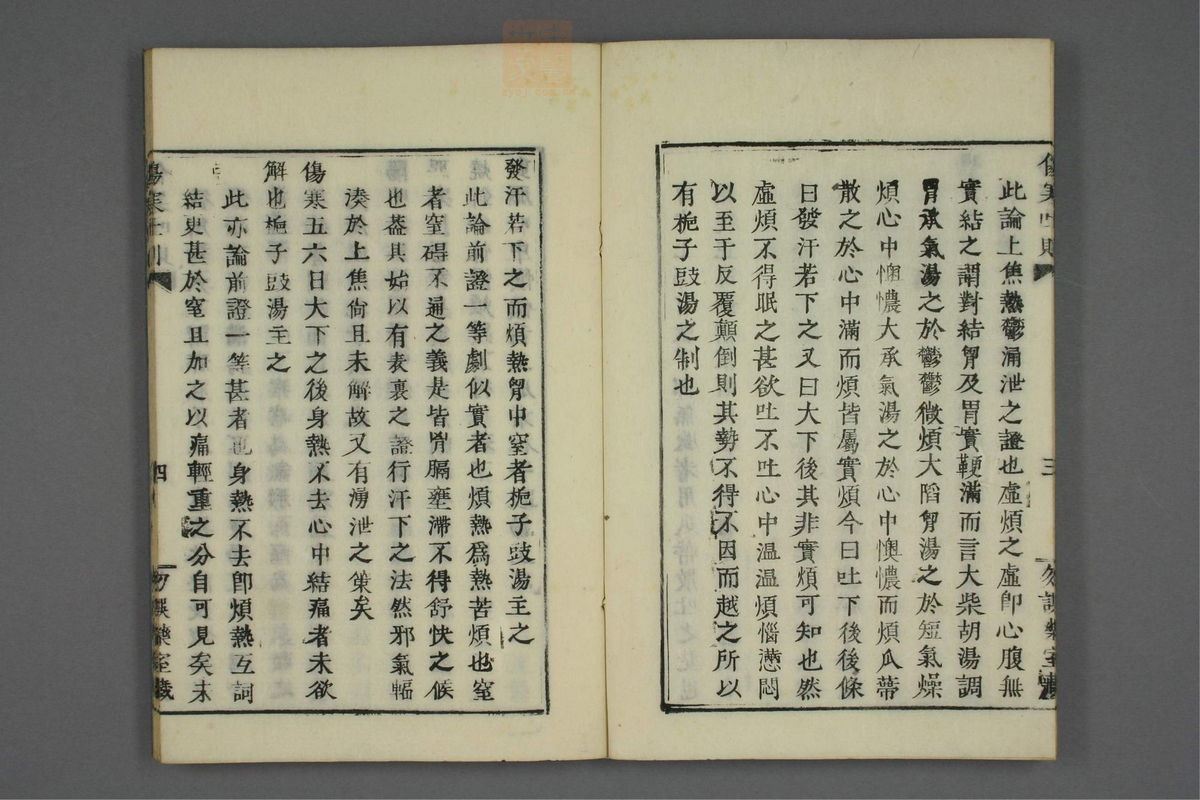 此論上焦熱鬱漏泄之證也虛煩之虛卽心腹無
實結之謂對結胷及胃實鞕滿而言大柴胡湯調
胃承氣湯之於鬱鬱微煩大陷胷湯之於短氣燥
煩心中懊憹大承氣湯之於心中懊憹而煩瓜蒂
散之於心中滿而煩皆屬實煩今曰吐下後後條
曰發汗若下之又曰大下後其非實煩可知也然
虛煩不得眠之甚欲吐不吐心中温温煩惱懣悶
以至于反覆顛倒則其勢不得不因而越之所以
有梔子豉湯之制也
三
發汗若下之而煩熱胷中窒者梔子豉湯主之
此論前證一等劇似實者也煩熱爲熱苦煩也窒
者窒碍不通之義是皆胷膈壅滯不得舒快之候
也葢其始以有表裏之證行汗下之法然邪氣輻
湊於上焦尙且未解故又有湧泄之策矣
傷寒五六日大下之後身熱不去心中結痛者未欲
解也梔子豉湯主之
此亦論前證一等甚者也身熱不去卽煩熱互詞
結更甚於窒且加之以痛輕重之分自可見矣未
四